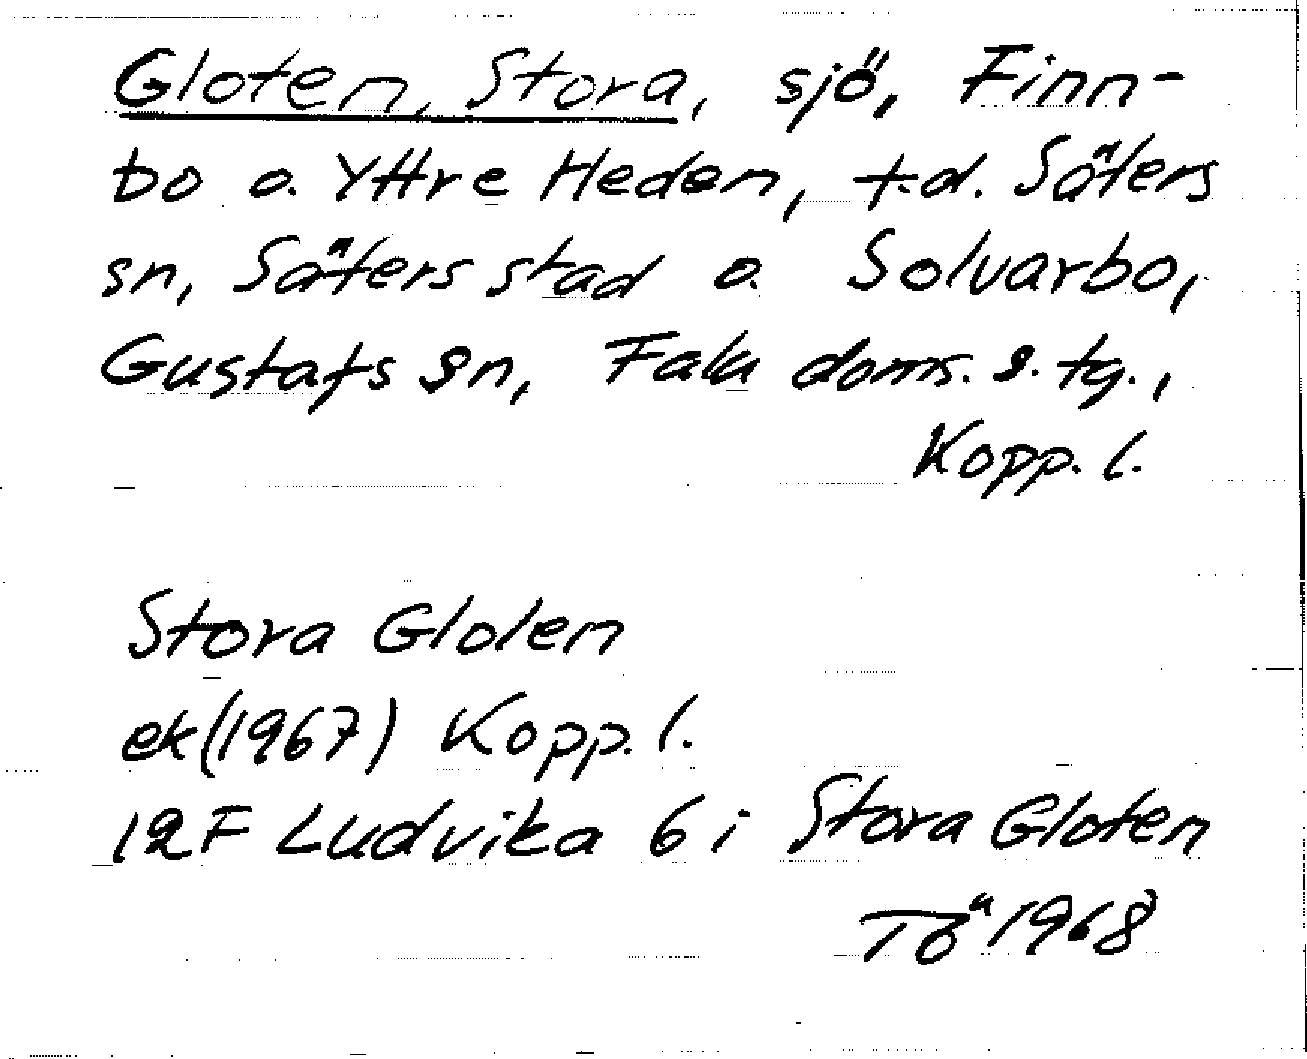 Gloten, Stora, sjö, Finn-
bo o. Yttre Heden, t.d. Säters
sn, Säters stad o. Solvarbo,
Gustafs sn, Falu doms. s. tg.,
Kopp. l.
Stora Gloten
ek (1967) Kopp. l.
12F Ludvika 6 i Stora Gloten
TÖ 1968